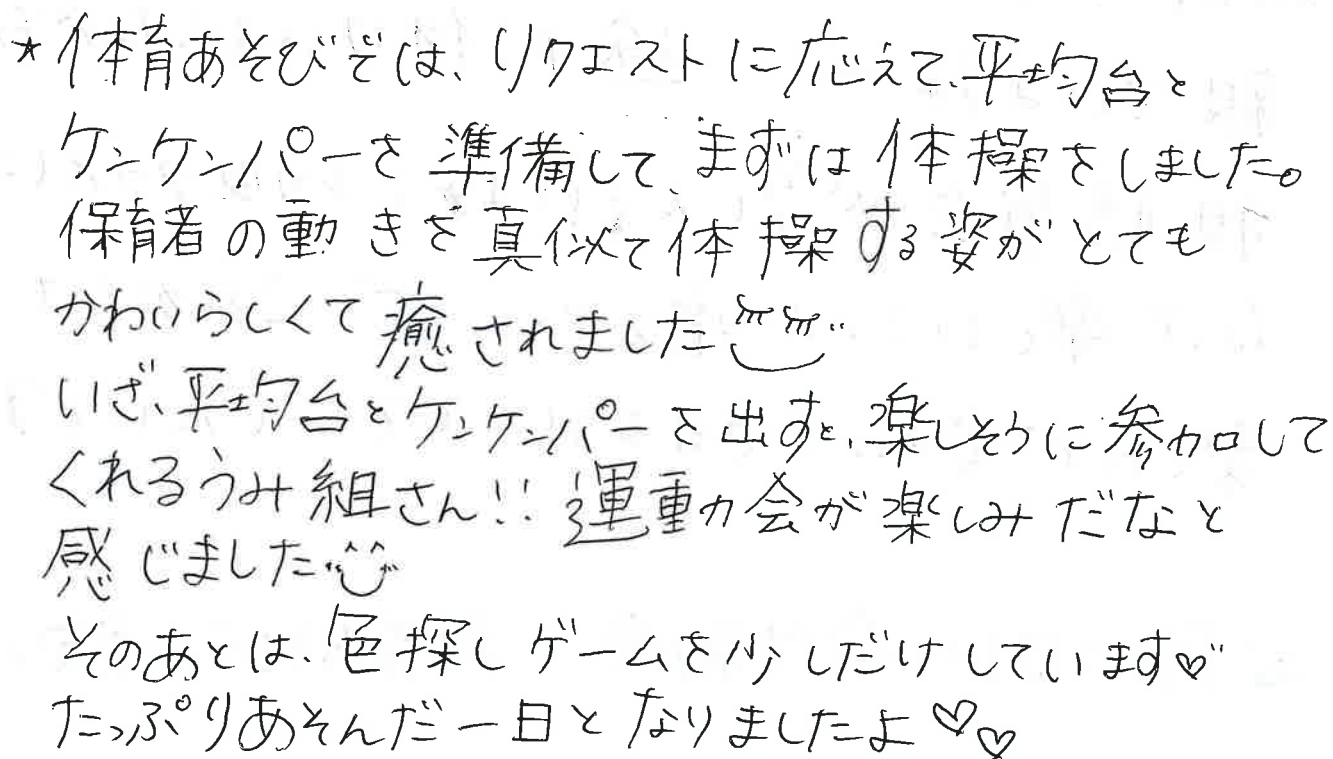 ★体育あそびでは、リクエストに応えて、平均台と
ケンケンパーを準備して、まずは体操をしました。
保育者の動きを真似て体操する姿がとても
かわいらしくて癒されました
いざ、平均台とケンケンパーを出すと、楽しそうに参加して
くれるうみ組さん!!運動会が楽しみだなと
感じました
そのあとは、色探しゲームを少しだけしています♡
たっぷりあそんだ一日となりましたよ♡♡